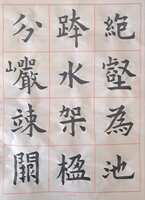 絶壑為池
跨水架楹
分巖竦闕